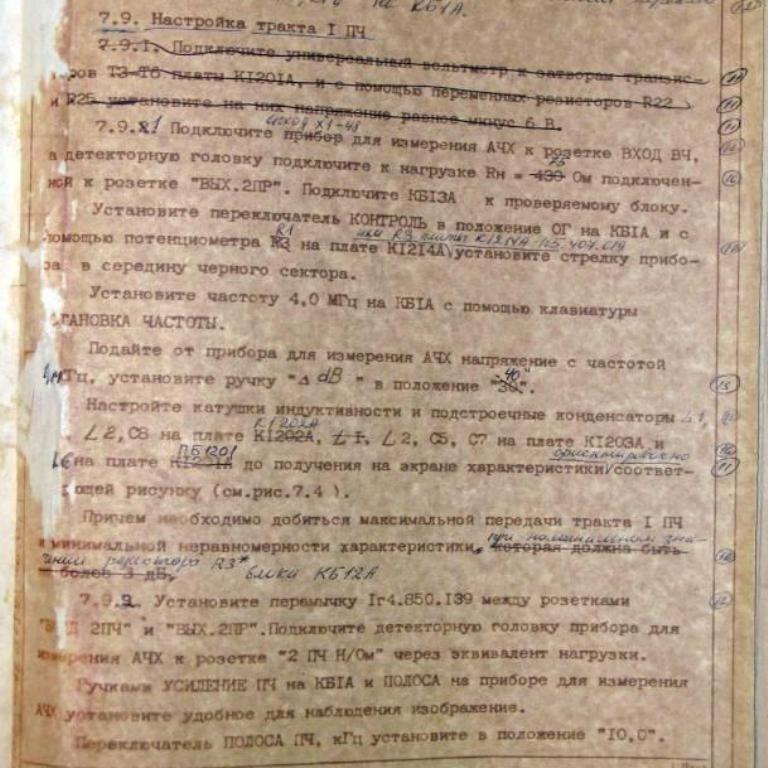 на КБ1А.
7.9. Настройка тракта I ПЧ
7.9.1. Подключите универсальный вольтметр к затворам транзис-
ров Т3-Т6 платы КI20IА, и с помощью переменных резисторов R22
и R25 установите на них напряжение равное минус 6 В.
7.9.1 Подключите прибор для измерения АЧХ к розетке ВХОД ВЧ,
а детекторную головку подключите к нагрузке Rн = 75 Ом подключен-
ной к розетке "ВЫХ.2ПР". Подключите КБI3А к проверяемому блоку.
Установите переключатель КОНТРОЛЬ в положение ОГ на КБIА и с
помощью потенциометра R1 на плате КI2I4А или R3 платы установите стрелку прибо-
ра в середину черного сектора.
Установите частоту 4,0 МГц на КБIА с помощью клавиатуры
ТАНОВКА ЧАСТОТЫ.
Подайте от прибора для измерения АЧХ напряжение с частотой
МГц, установите ручку "Δ dB " в положение "40".
Настройте катушки индуктивности и подстроечные конденсаторы L1,
L2,C8 на плате К1202А, L1, L2, C5, C7 на плате КI203А и
L6 на плате ПБ1201 до получения на экране характеристики ориентировочно соответ-
ющей рисунку (см.рис.7.4 ).
Причем необходимо добиться максимальной передачи тракта I ПЧ
и минимальной неравномерности характеристики, при номинальном зна-
чении резистора R3* блока КБ12А
которая должна быть
более 3 дБ.
7.9.2. Установите перемычку Iг4.850.I39 между розетками
"ВХОД 2ПЧ" и "ВЫХ.2ПР".Подключите детекторную головку прибора для
измерения АЧХ к розетке "2 ПЧ Н/Ом" через эквивалент нагрузки.
Ручками УСИЛЕНИЕ ПЧ на КБIА и ПОЛОСА на приборе для измерения
АЧХ установите удобное для наблюдения изображение.
Переключатель ПОЛОСА ПЧ, кГц установите в положение "I0,0".